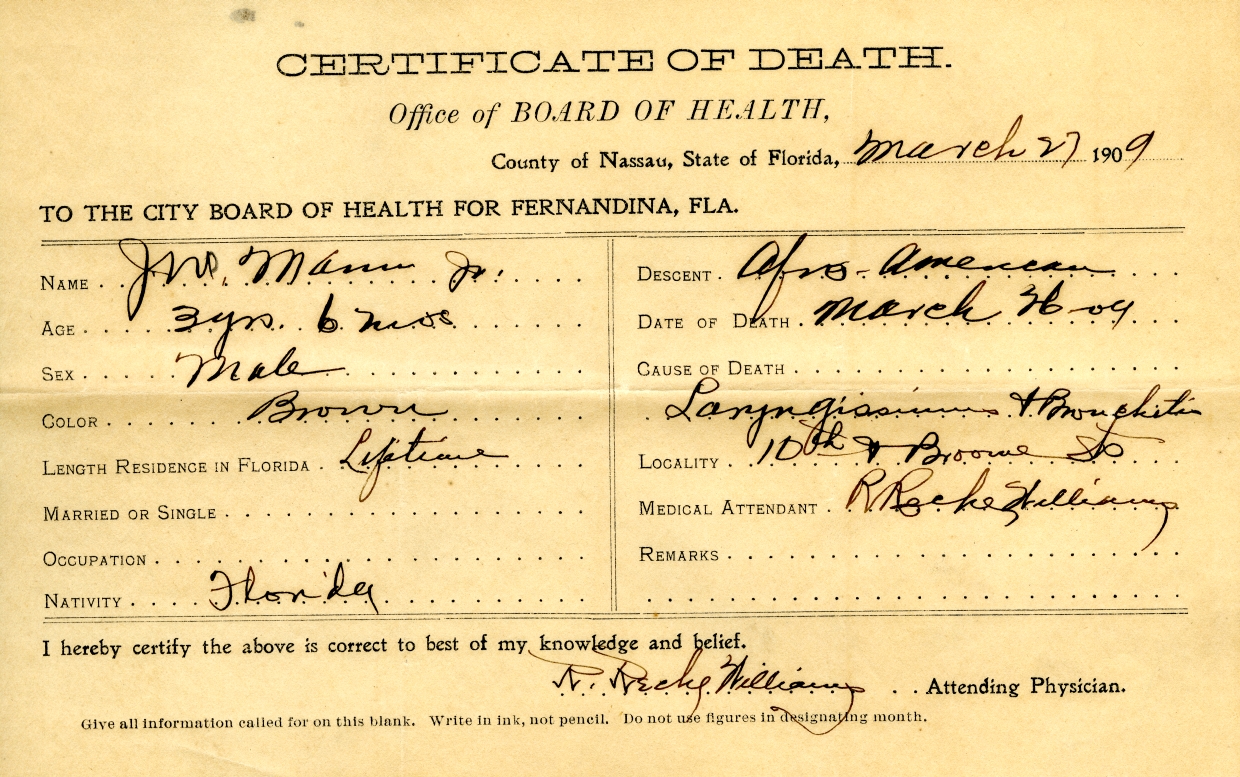 CERTIFICATE OF DEATH.
Office of BOARD OF HEALTH,
County of Nassau, State of Florida, March 27 1909
TO THE CITY BOARD OF HEALTH FOR FERNANDINA, FLA.
NAME Jno. Mann Jr.
AGE 3 yrs. 6 mos
SEX Male
COLOR Brown
LENGTH RESIDENCE IN FLORIDA Lifetime
MARRIED OR SINGLE
OCCUPATION
NATIVITY Florida
DESCENT. Afro-American
DATE OF DEATH March 26-09
CAUSE OF DEATH
Laryngissimus & Bronchitis
LOCALITY 10th & Broome St
MEDICAL ATTENDANT R Reche Williams
REMARKS
I hereby certify the above is correct to best of my knowledge and belief.
R. Reche Williams Attending Physician.
Give all information called for on this blank. Write in ink, not pencil. Do not use figures in designating month.